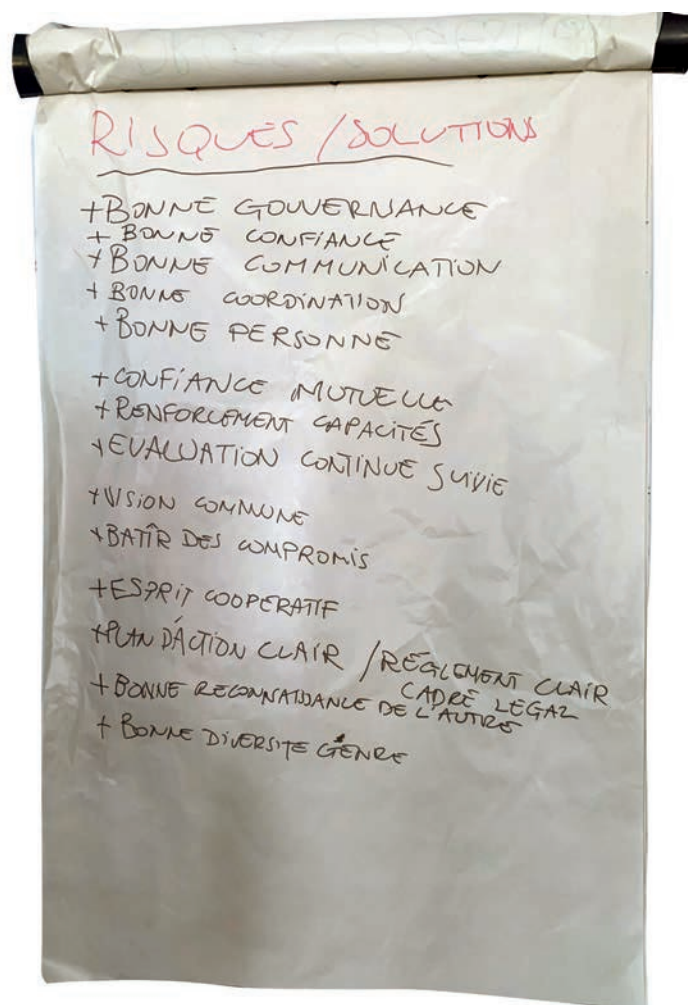 RISQUES / SOLUTIONS
+ BONNE GOUVERNANCE
+ BONNE CONFIANCE
+ BONNE COMMUNICATION
+ BONNE COORDINATION
+ BONNE PERSONNE
+ CONFIANCE MUTUELLE
+ RENFORCEMENT CAPACITÉS
+ EVALUATION CONTINUE SUIVIE
+ VISION COMMUNE
+ BATÎR DES COMPROMIS
+ ESPRIT COOPERATIF
+ PLAN D'ACTION CLAIR / RÉGLEMENT CLAIR
CADRE LEGAL
+ BONNE RECONNAISSANCE DE L'AUTRE
+ BONNE DIVERSITE GENRE